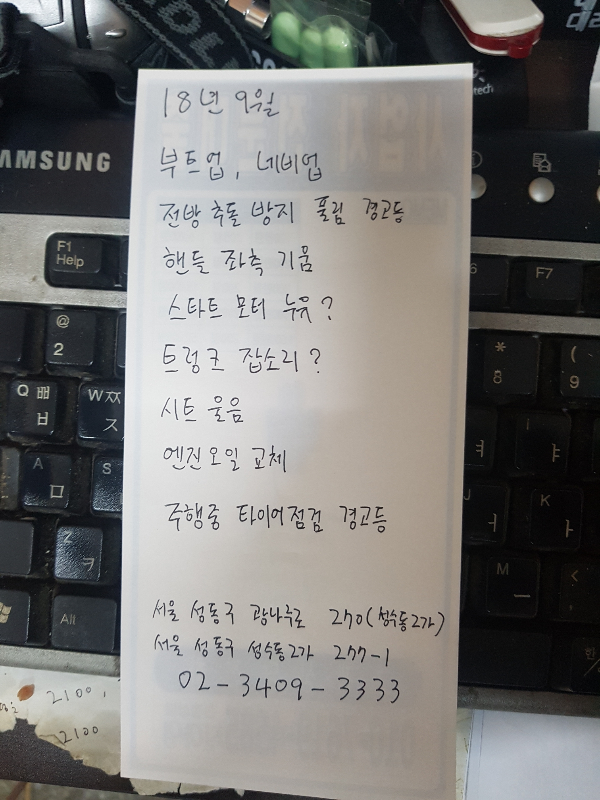 SAMSUNG
18년 9월
부트업, 네비업
전방 추돌 방지 풀림 경고등
핸들 좌측 기움
스타트 모터 누유?
트렁크 잡소리?
시트 울음
엔진오일 교체
주행중 타이어점검 경고등
서울 성동구 광나루로 270(성수동2가)
서울 성동구 성수동2가 277-1
02-3409-3333
F1
Help
F7
@
2
*
8
(
9
Q ㅃ
ㅂ
W ㅉ
ㅈ
ㅕ
ㅑ
A
ㅁ
S
J
ㅓ
K
ㅏ
Z
ㅋ
M
ㅡ
<
Alt
한
2100,
2100